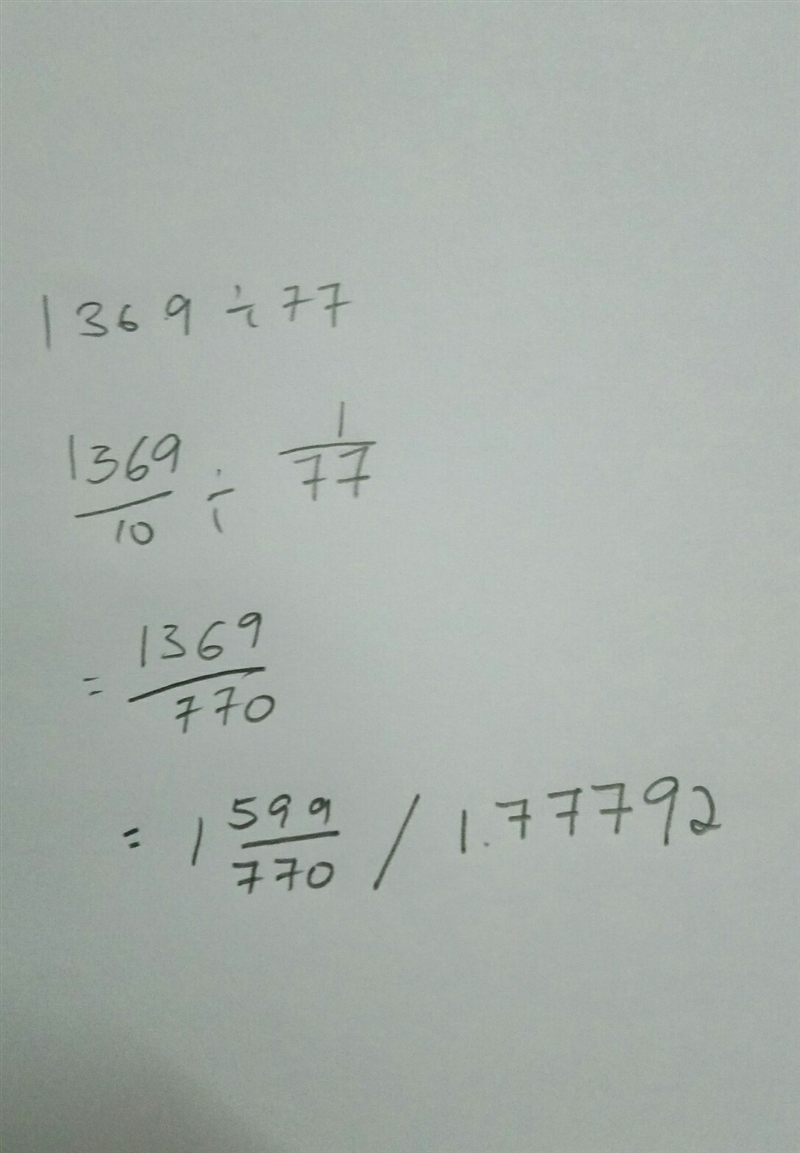 1369 ÷ 77
1369/10 ÷ 1/77
= 1369/770
= 1 599/770 / 1.77792